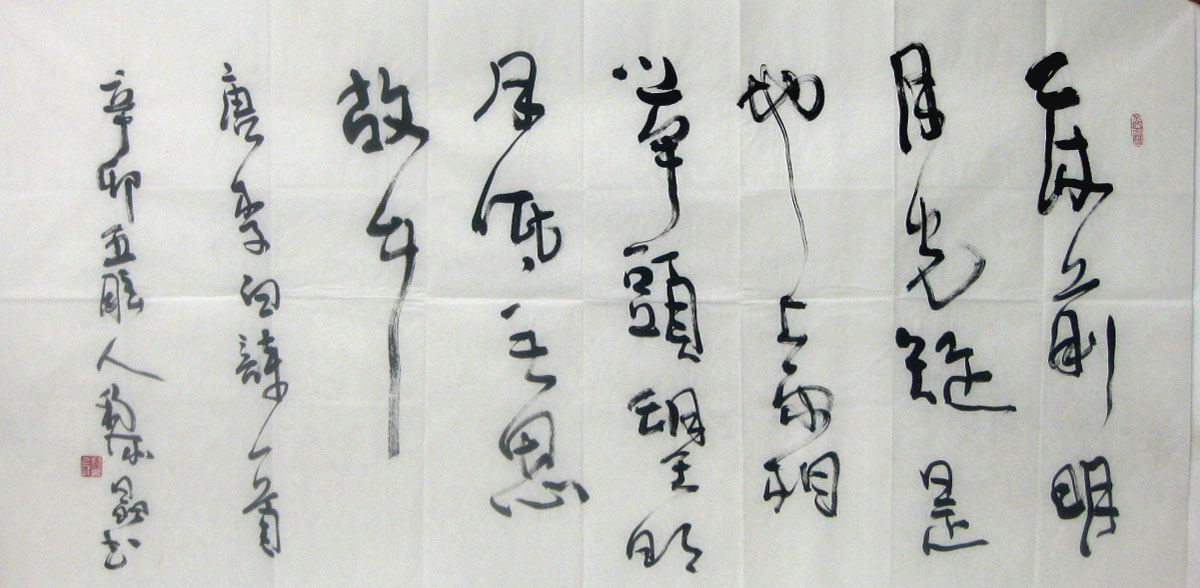 床前明
月光疑是
地上霜
举頭望明
月低头思
故乡
唐李白詩一首
辛卯五人黎晶书